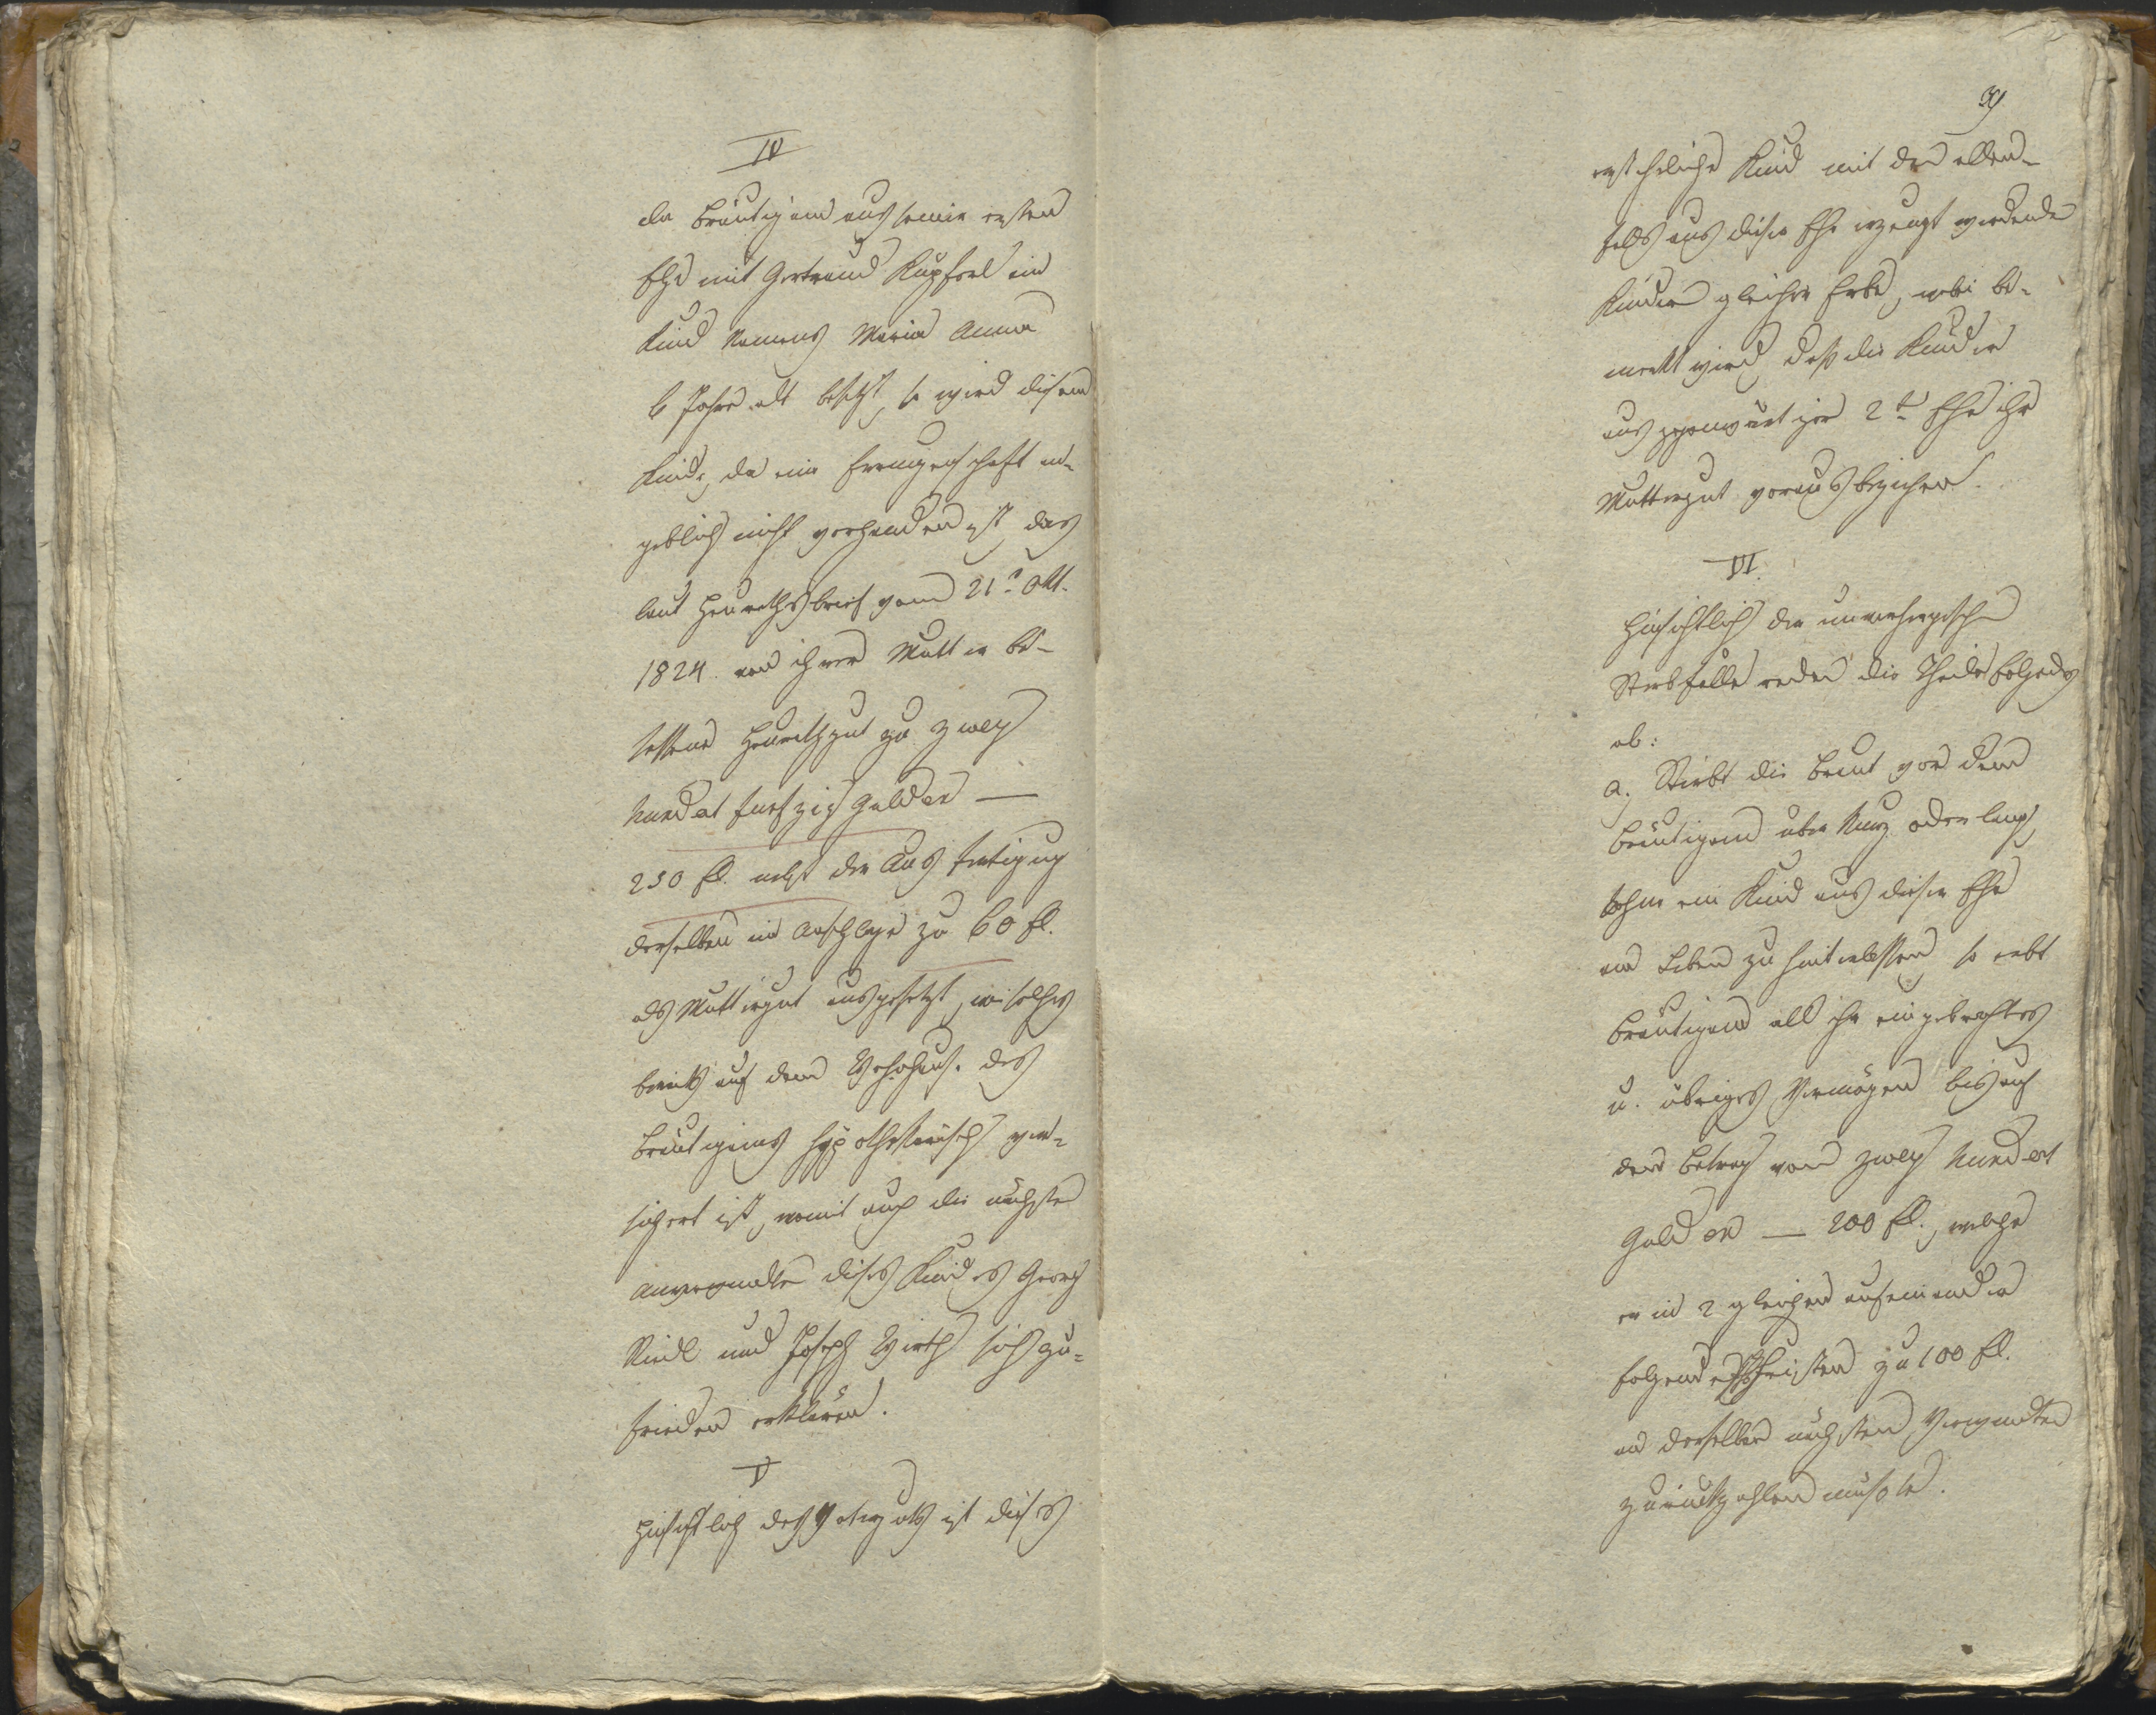 IV
Da Bräutigam aus seiner ersten
Ehe mit Gertraud Kupferl ein
Kind Namens Maria Anna
6 Jahre alt besitzt, so wird diesem
Kinde, da eine Errungenschaft an-
geblich nicht vorhanden ist, das
laut Heurathsbrief vom 21t Okt.
1824. von ihrer Mutter be-
sessene Heurathgut zu zwey
hundert funfzig Gulden —
250 fl. nebst der Ausfertigung
derselben im Anschlage zu 60 fl.
als Muttergut ausgesetzt, wie solches
bereits auf dem Wohnhause des
Bräutigams hypothekarisch ver-
sichert ist, womit auch die nächsten
Anverwandte dieses Kindes Georg
Riedl und Joseph Wirth sich zu-
frieden erklären.
V
Hinsichtlich des Vaterguts ist dieses
39
erst eheliche Kind mit den allen-
falls aus dieser Ehe erzeugt werdende
Kindern gleicher Erbe, wobei be-
merkt wird, daß die Kinder
aus gegenwärtiger 2ter Ehe ihr
Muttergut voraus beziehen.
VI.
Hinsichtlich der unvorhergesehenen
Sterbfälle reden die Theile folgendes
ab:
a. Stirbt die Braut vor dem
Bräutigam über kurz oder lang,
ohne ein Kind aus dieser Ehe
am Leben zu hinterlassen, so erbt
Bräutigam all ihr eingebrachtes
u. übriges Vermögen bis auf
den Betrag von zwey hundert
Gulden — 200 fl., welche
er in 2 gleichen aufeinander
folgenden Fristen zu 100 fl.
an derselben nächsten Verwandten
zurückzahlen müßte.